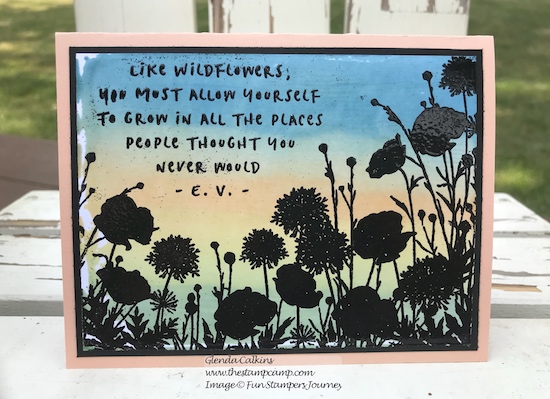 LIKE WILDFLOWERS;
YOU MUST ALLOW YOURSELF
TO GROW IN ALL THE PLACES
PEOPLE THOUGHT YOU
NEVER WOULD
- E. V. -
Glenda Calkins
www.thestampcamp.com
Image © Fun Stampers Journey